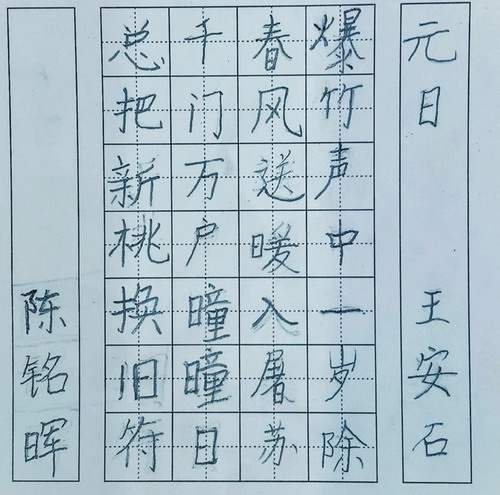 元日 王安石
爆竹声中一岁除
春风送暖入屠苏
千门万户曈曈日
总把新桃换旧符
陈铭晖